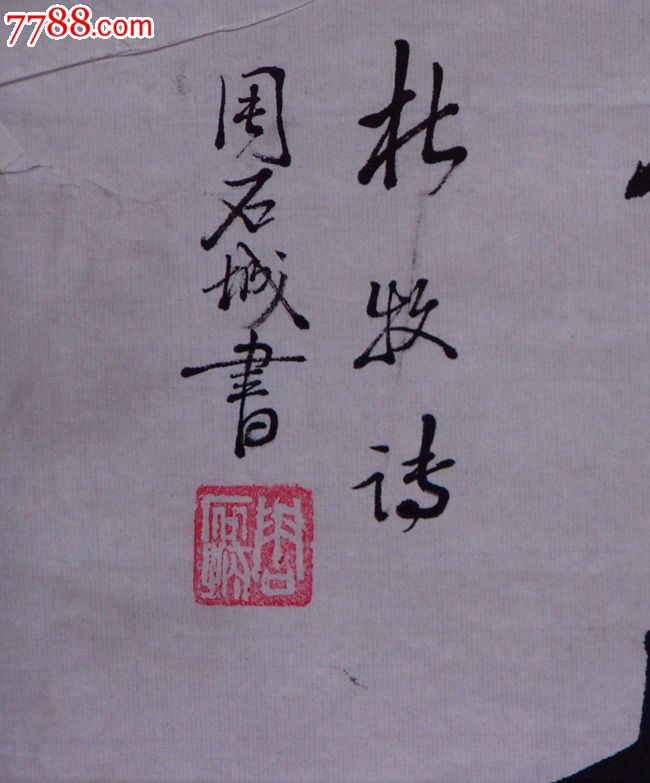 7788.com
杜牧诗
周石城書
周石城